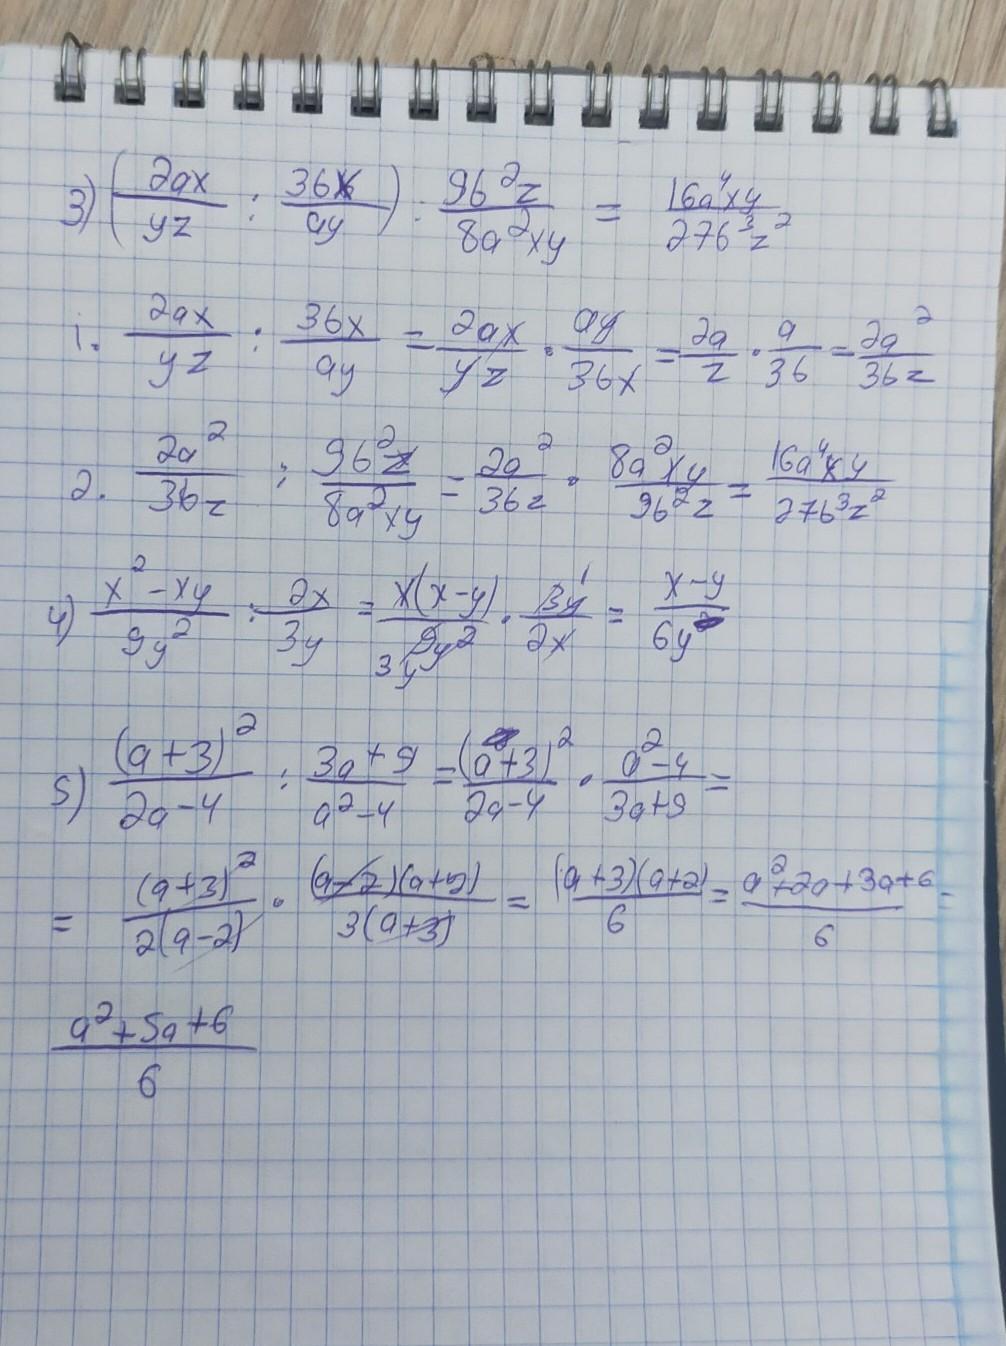 3) (2ax/yz : 3bx/ay) : 9b²z/8a²xy = 16a⁴xy/27b³z²
1. 2ax/yz : 3bx/ay = 2ax/yz · ay/3bx = 2a/z · a/3b = 2a²/3bz
2. 2a²/3bz : 9b²z/8a²xy = 2a²/3bz · 8a²xy/9b²z = 16a⁴xy/27b³z²
4) x²-xy/9y² : 2x/3y = x(x-y)/9y² 3y · 3y 1/2x = x-y/6y
5) (a+3)²/2a-4 : 3a+9/a²-4 = (a+3)²/2a-4 · a²-4/3a+9 =
= (a+3)²/2(a-2) · (a-2)(a+2)/3(a+3) = (a+3)(a+2)/6 = a²+2a+3a+6/6 =
a²+5a+6/6